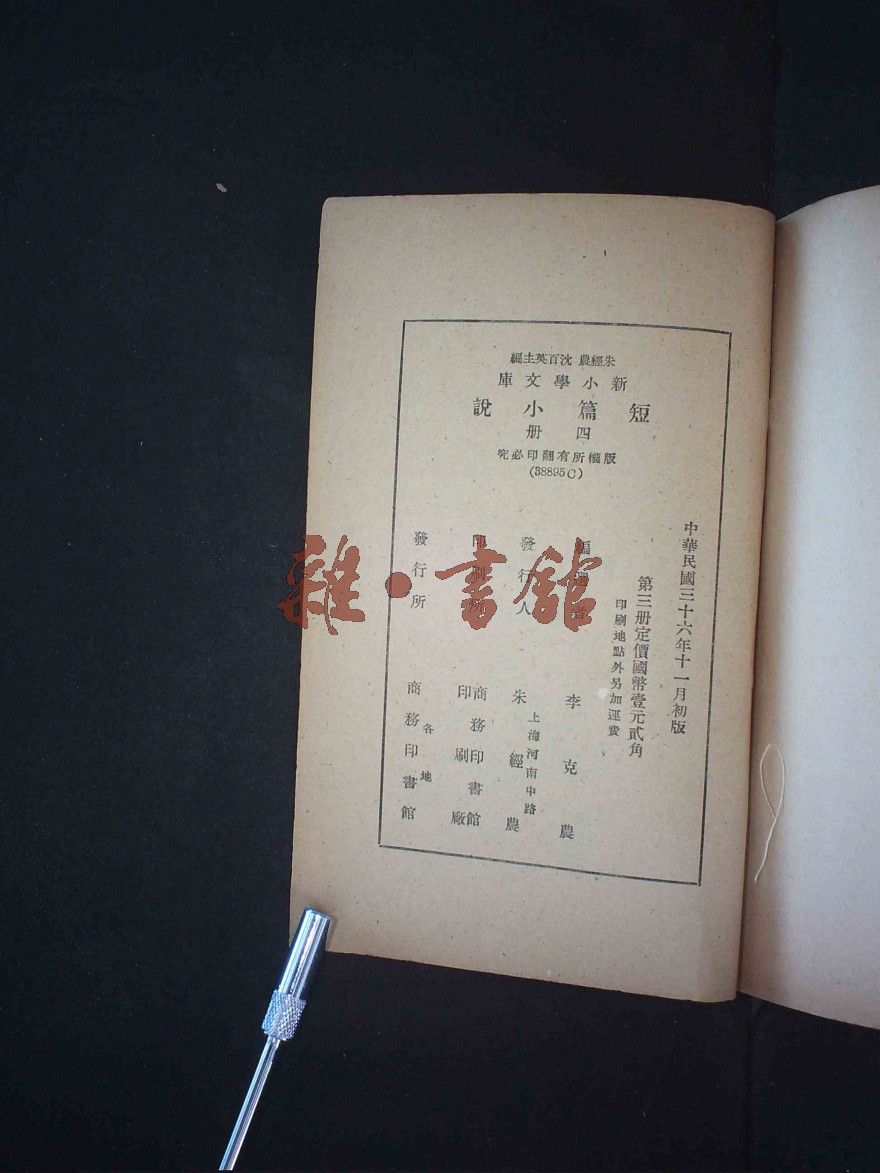 朱經農 沈百英主編
新小學文庫
短篇小說
四册
版權所有翻印必究
(38895C)
中華民國三十六年十一月初版
第三册定價國幣壹元貳角
印刷地點外另加運費
編 者 李克農
發行人 上海河南中路 朱經農
印刷所 商務印書館 印刷廠
發行所 各地 商務印書館
雜·書館